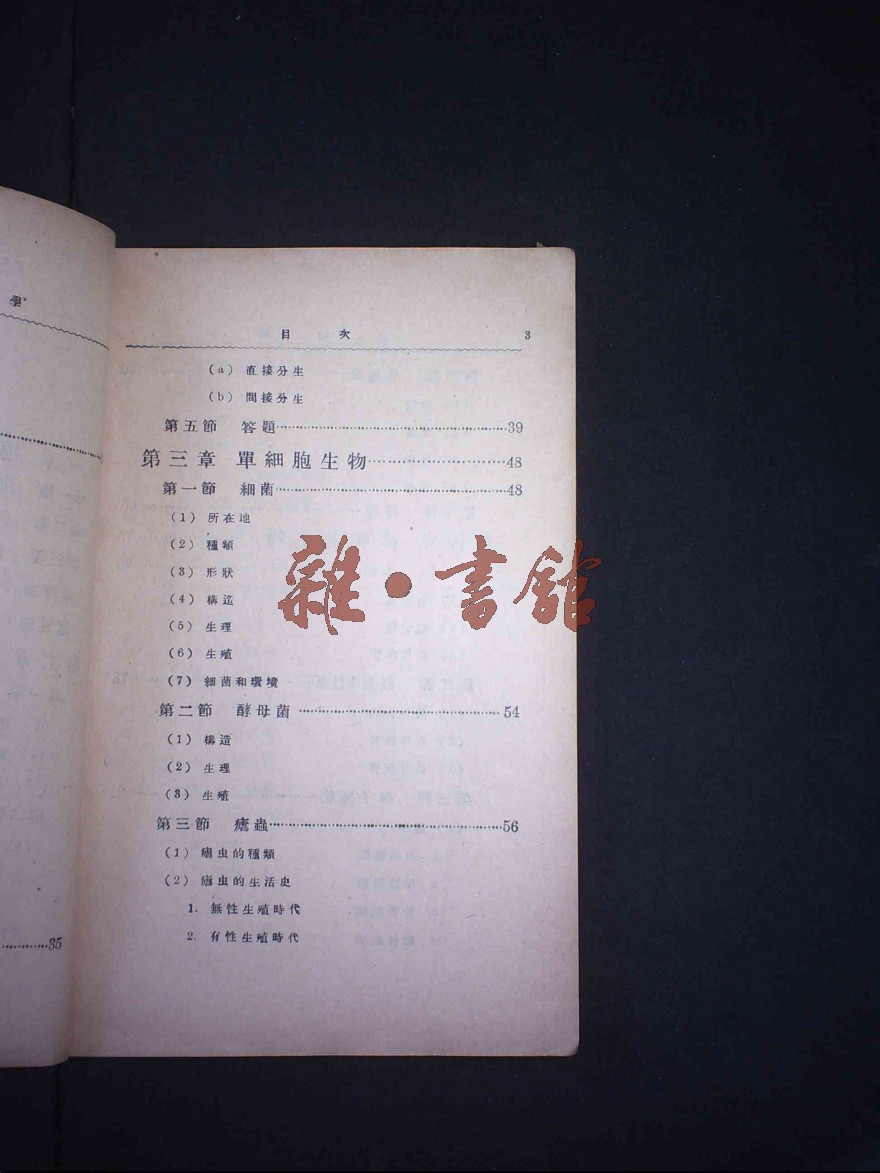 學
35
目 次 3
(a) 直接分生
(b) 間接分生
第五節 答題⋯⋯39
第三章 單細胞生物⋯⋯48
第一節 細菌⋯⋯48
(1) 所在地
(2) 種類
(3) 形狀
(4) 構造
(5) 生理
(6) 生殖
(7) 細菌和環境
第二節 酵母菌⋯⋯54
(1) 構造
(2) 生理
(3) 生殖
第三節 瘧蟲⋯⋯56
(1) 瘧虫的種類
(2) 瘧虫的生活史
1. 無性生殖時代
2. 有性生殖時代
雜·書館